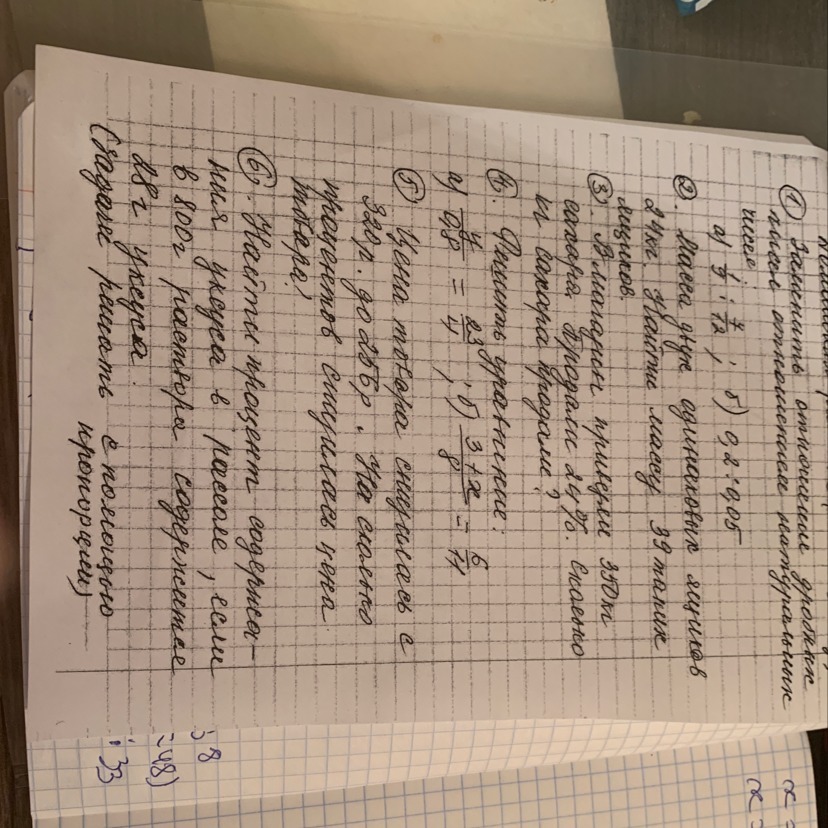 ① Заменить отношение дробных
чисел отношением натуральных
чисел:
а) : 7/12 ; б) 0,2 : 0,05
②. Масса двух одинаковых ящиков
24кг. Найти массу 39 таких
ящиков.
③. В магазин привезли 350кг
сахара. Продали 24%. Сколько
кг сахара продали?
④. Решить уравнение:
а) /0,8 = /4 ; б) 3+x/8 = 6/11
⑤ Цена товара снизилась с
320р. до 256р. На сколько
процентов снизилась цена
товара?
⑥. Найти процент содержа-
ния уксуса в рассоле, если
в 800г раствора содержится
28г уксуса.
(Задачи решать с помощью
пропорции)